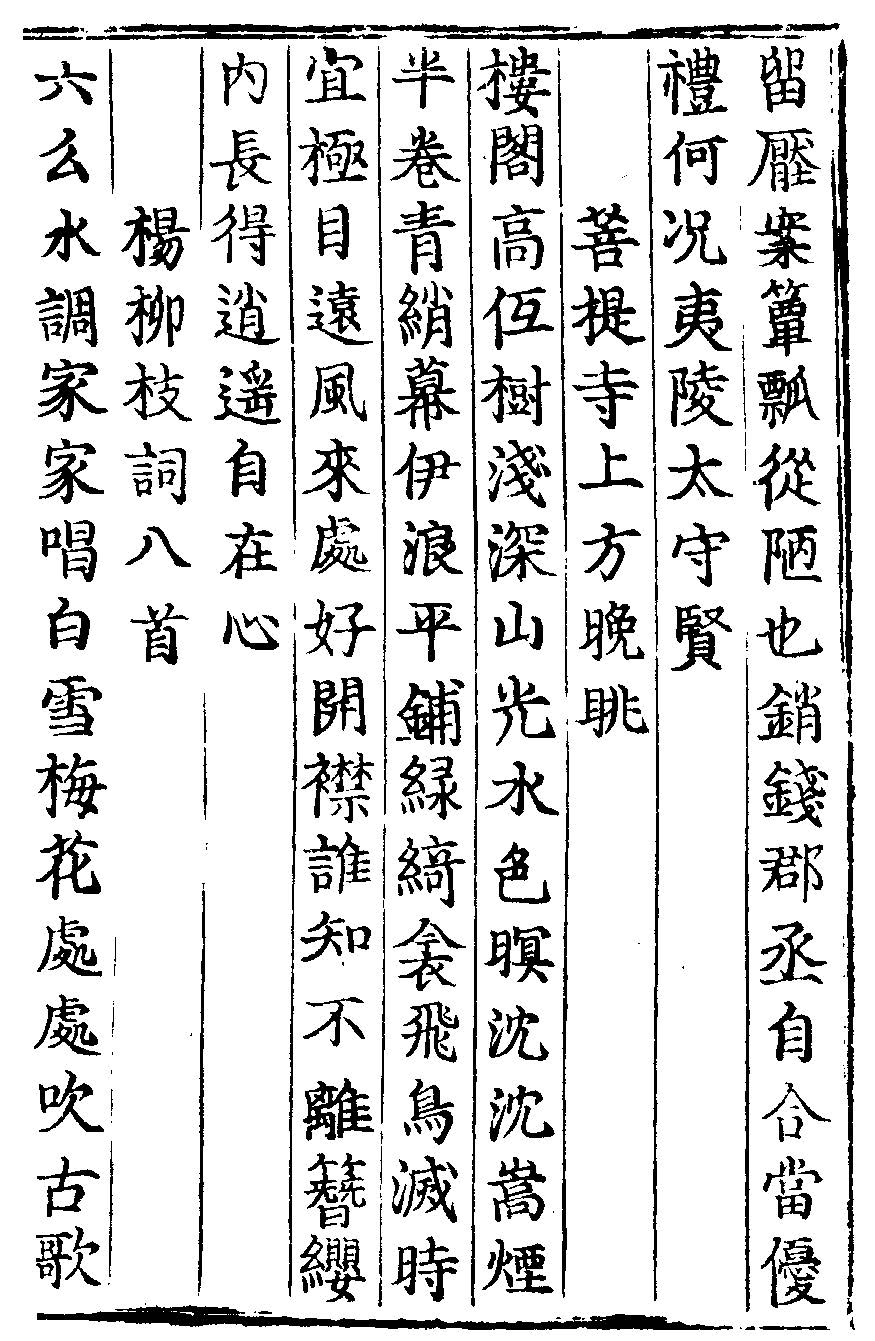 留壓案簞瓢從陋也銷錢郡丞自合當優
禮何况夷陵太守賢
菩提寺上方晚眺
樓閣高仾樹淺深山光水色暝沈沈嵩煙
半卷青綃幕伊浪平鋪緑綺衾飛鳥滅時
宜極目遠風來處好開襟誰知不離簪纓
内長得逍遥自在心
楊柳枝詞八首
六么水調家家唱白雪梅花處處吹古歌